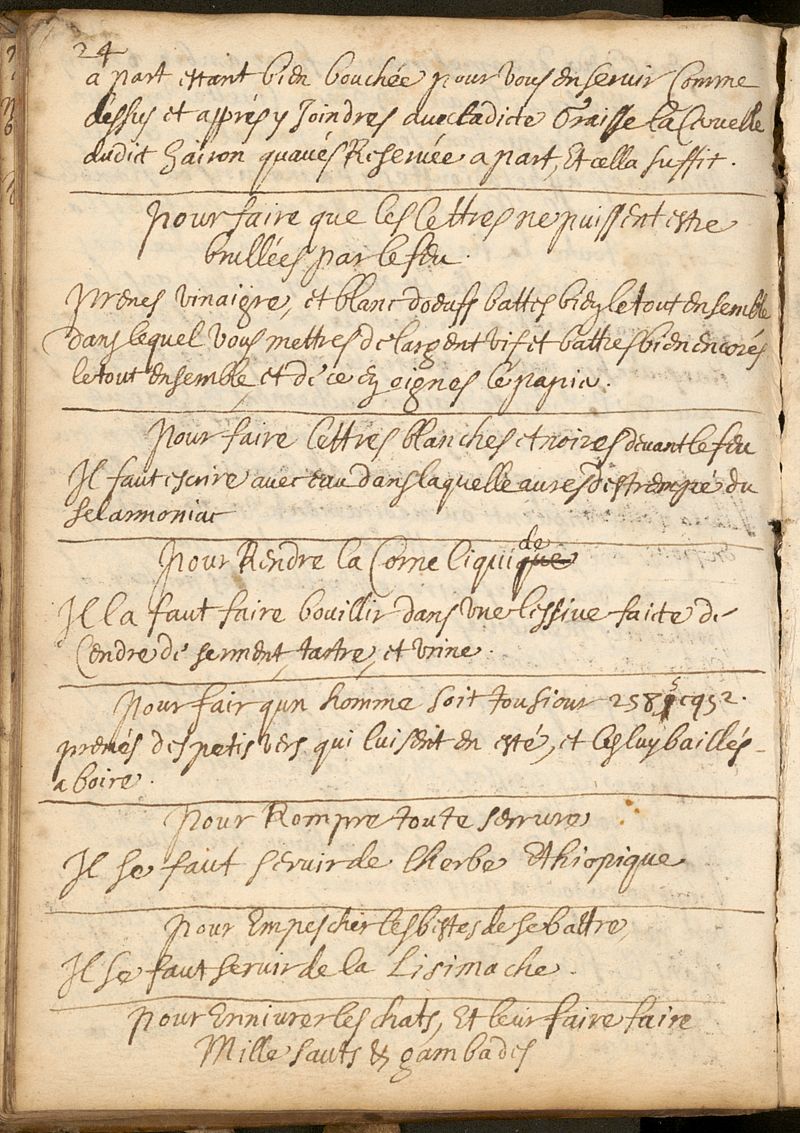 24
a part estant bien bouchée pour vous en servir Comme
dessus et apprés y Joindres avec ladicte Graisse la Cervelle
dudit hairon quavés Reservée a part, Et cella suffit.
pour faire que les lettres ne puissent estre
brullées par le feu.
prenes vinaigre, et blanc doeufs battes bien le tout ensemble
dans lequel vous mettres de largent vif et battres bien encorés
le tout ensemble et de ce en oignes le papier.
pour faire lettres blanches et noires devant le feu
Il faut escrire avec eau dans laquelle aures destrempé du
sel armoniac
pour Rendre la Corne liquide
Il la faut faire bouillir dans une lessive faicte de
Cendre de serment, tartre, et urine.
pour fair qun homme soit tousiour
prenés des petis vers qui luisent en esté, et les luy baillés
a boire.
pour Rompre toute serrure
Il se faut servir de lherbe Ethiopique
pour Empescher les bestes de se battre
Il se faut servir de la Lisimache.
pour Enniurer les chats, Et leur faire faire
Mille sauts & gambades